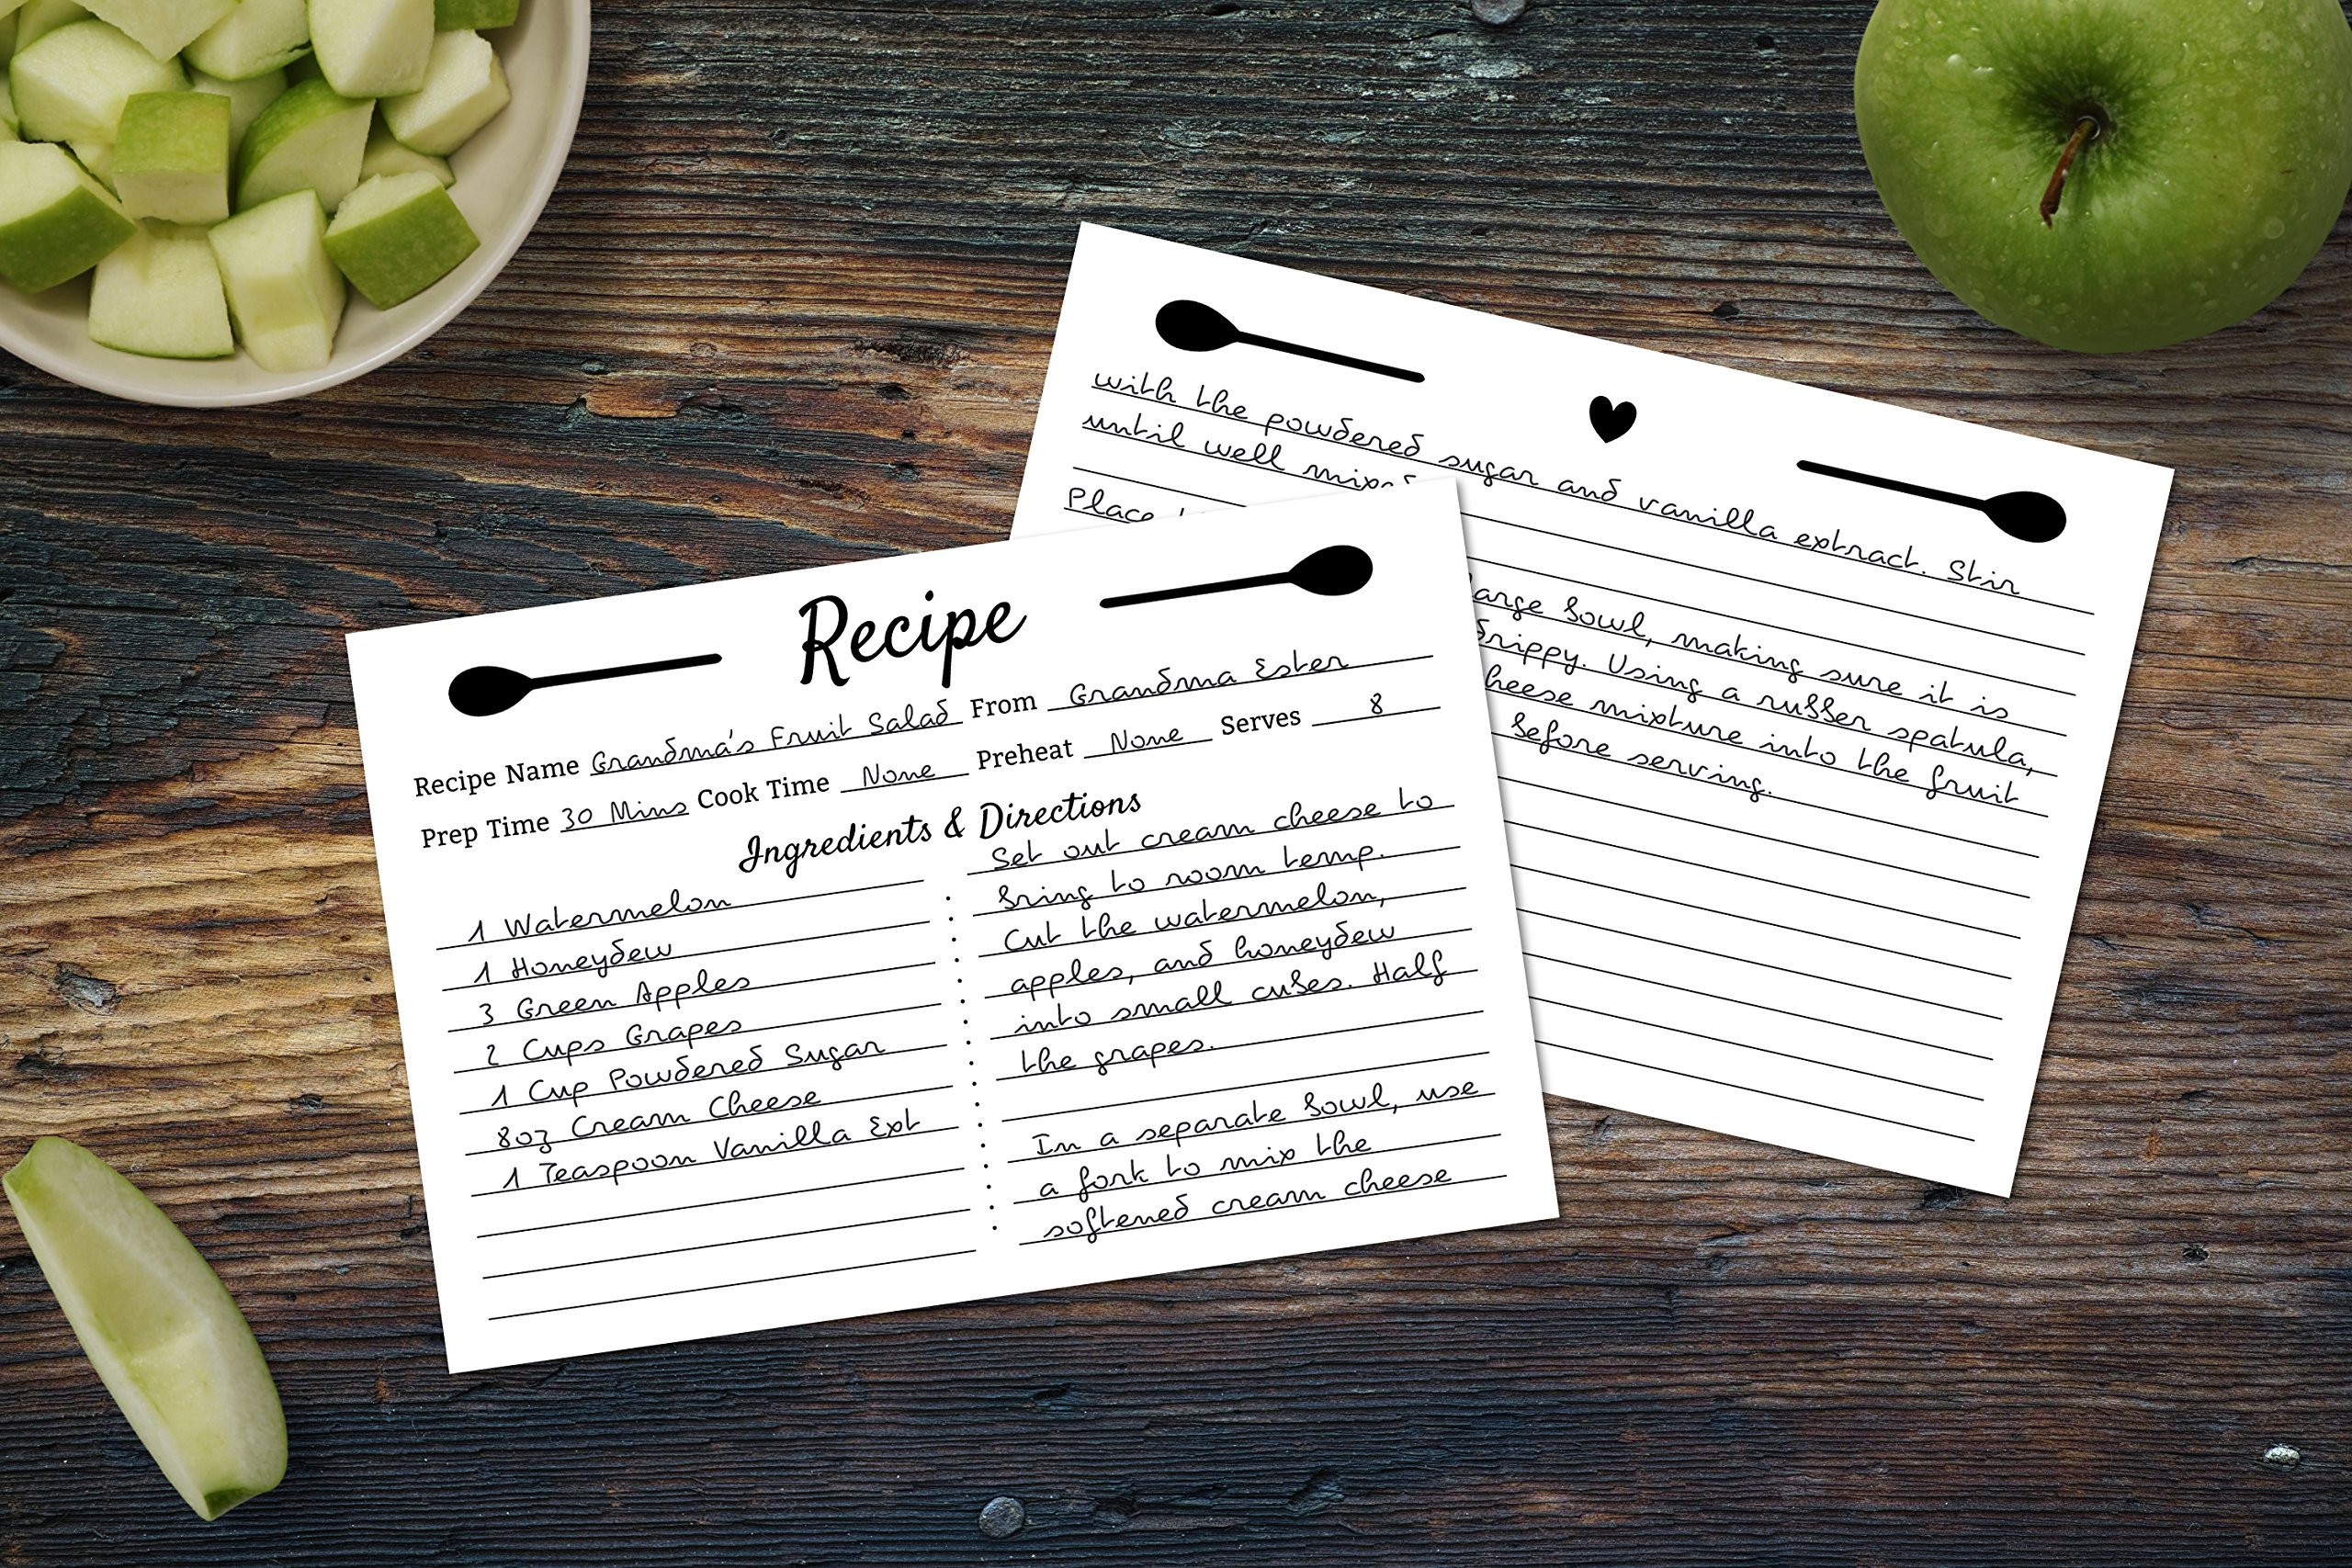 Recipe
Recipe Name Grandma's Fruit Salad From Grandma Ester
Prep Time 30 Mins Cook Time None Preheat None Serves 8
Ingredients & Directions
1 Watermelon
1 Honeydew
3 Green Apples
2 Cups Grapes
1 Cup Powdered Sugar
8oz Cream Cheese
1 Teaspoon Vanilla Ext
Set out cream cheese to
bring to room temp.
Cut the watermelon,
apples, and honeydew
into small cubes. Half
the grapes.
In a separate bowl, use
a fork to mix the
softened cream cheese
with the powdered sugar and vanilla extract. Stir
until well mixed
Place
bowl, making sure it is
drippy. Using a rubber spatula,
mixture into the fruit
before serving.